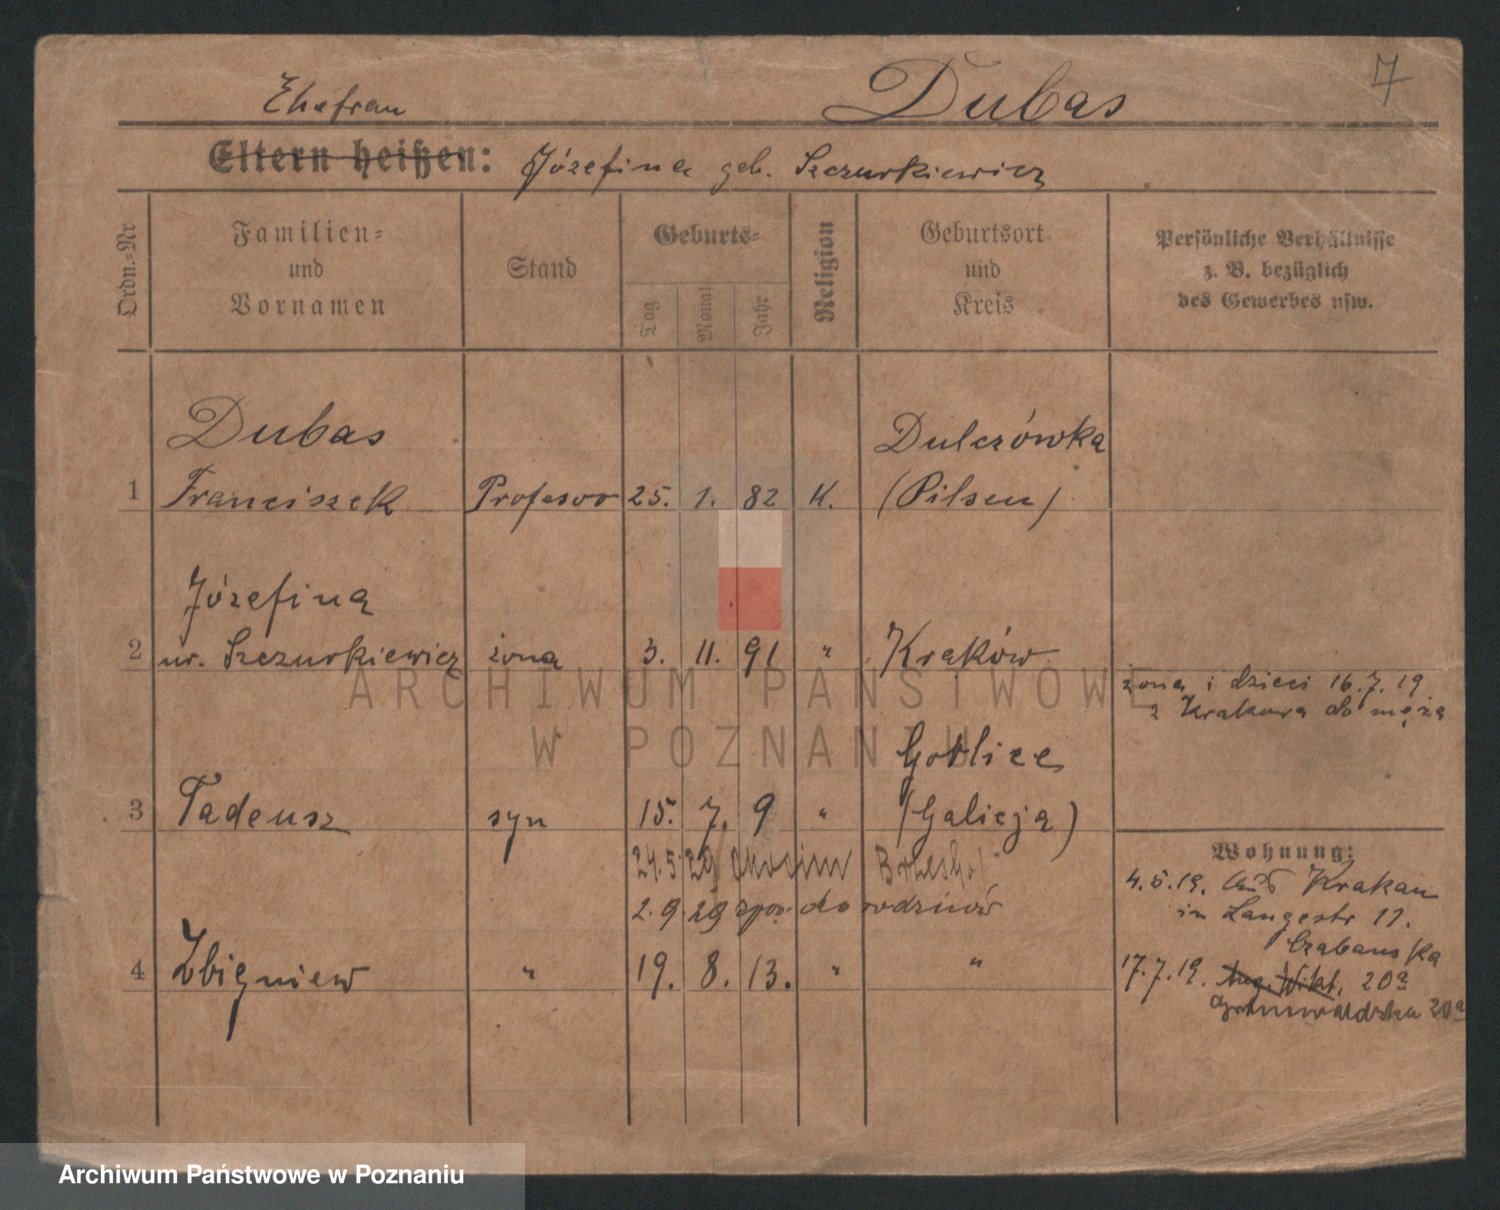 7
Ehefrau Dubas
Eltern heißen: Józefina geb. Szczurkiewicz
Ordn.-Nr
Familien-
und
Vornamen
Stand
Geburts-
Tag
Monat
Jahr
Religion
Geburtsort
und
Kreis
Persönliche Verhältnisse
z. B. bezüglich
des Gewerbes usw.
Dubas Dulczówka
1 Franciszek Profesor 25. 1. 82 K. (Pilsen)
Józefina
2 ur. Szczurkiewicz żona 3. 11. 91 " Kraków
żona i dzieci 16.7.19.
z Krakowa do męża
Gorlice
3 Tadeusz syn 15. 7. 9 " (Galicja)
24.5.29 Okocim
2.9.29 do rodziców
4 Zbigniew " 19. 8. 13. " "
Wohnung:
4.5.19. Aus Krakau
in Langestr 11.
17.7.19. Aug. Wikt. 20a
Grunwaldzka 20a
ARCHIWUM PAŃSTWOWE
W POZNANIU
Archiwum Państwowe w Poznaniu